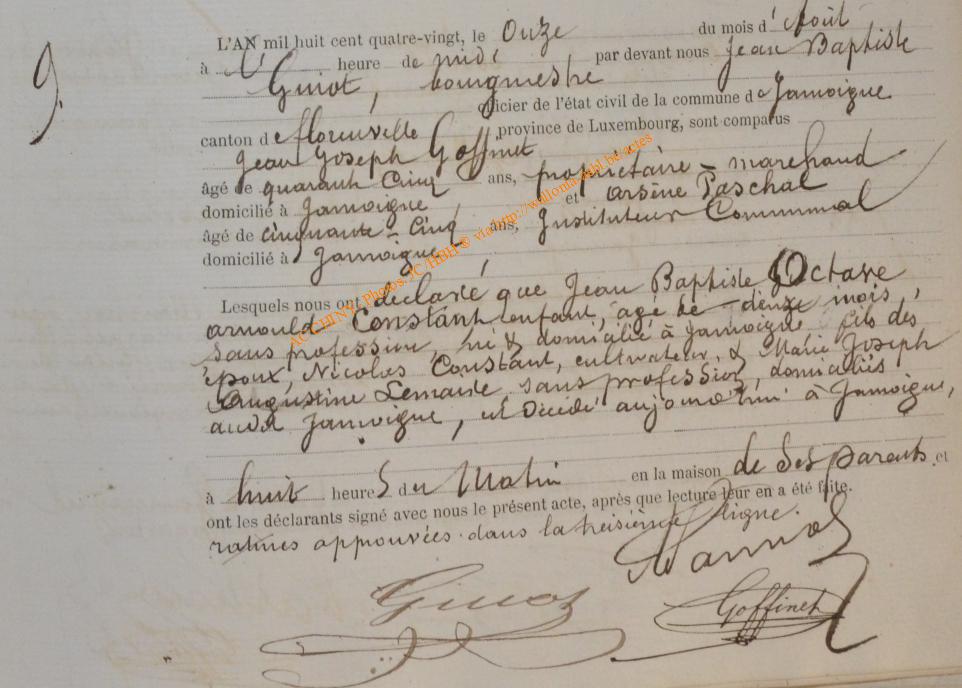 9.
L'AN mil huit cent quatre-vingt, le Onze du mois d'Août
à l' heure de midi par devant nous Jean Baptiste
Guiot, bourgmestre
officier de l'état civil de la commune de Jamoigne
canton de florenville province de Luxembourg, sont comparus
Jean Joseph Goffinet
âgé de quarante Cinq ans, propriétaire - marchand
domicilié à Jamoigne, et arsène Paschal
âgé de cinquante-Cinq ans, Instituteur Communal
domicilié à Jamoigne,
Lesquels nous ont déclaré que Jean Baptiste Octave
arnould Constant enfant, âgé de mois,
sans profession, né & domicilié à Jamoigne fils des
époux, Nicolas Constant, cultivateur, & Marie Joseph
Augustine Lemaire sans profession, domiciliés
audit Jamoigne, est décédé aujourd'hui à Jamoigne,
à huit heureS du Matin en la maison de Ses parents et
ont les déclarants signé avec nous le présent acte, après que lecture leur en a été faite.
ratures approuvées dans la treisième ligne.
Guiot
Goffinet
ACCHINY Photos JC HBH © via http://wallonia-asbl.be/actes